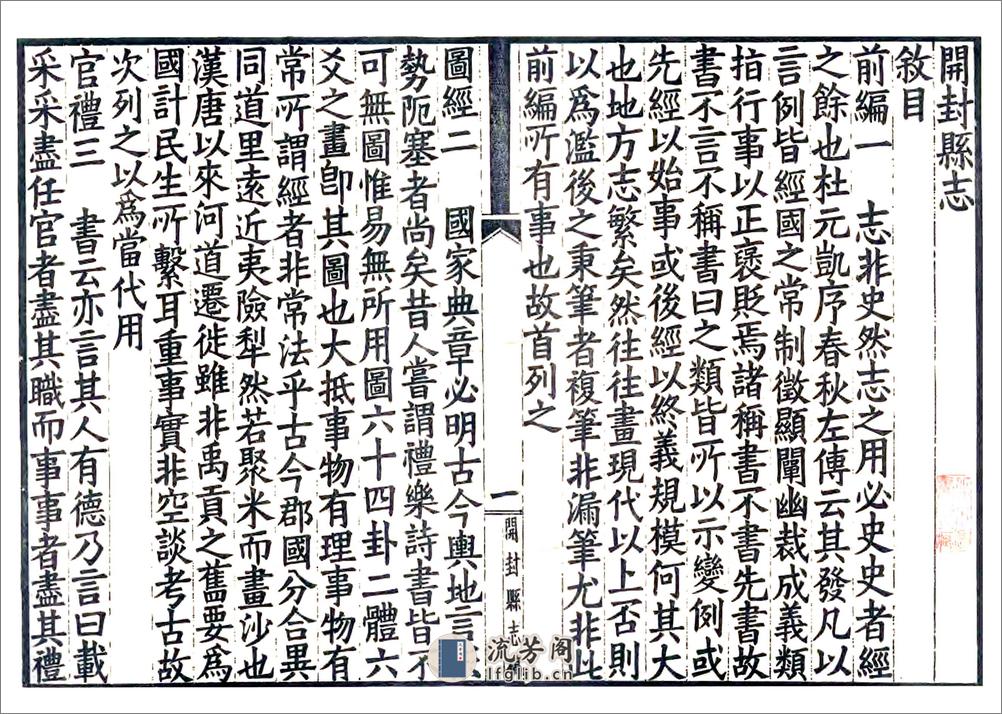 開封縣志
敘目
前編一　志非史然志之用必史史者經
之餘也杜元凱序春秋左傳云其發凡以
言例皆經國之常制徵顯闡幽裁成義類
指行事以正褒貶焉諸稱書不書先書故
書不言不稱書曰之類皆所以示變例或
先經以始事或後經以終義規模何其大
也地方志繁矣然往往畫現代以上否則
以爲濫後之秉筆者複筆非漏筆尤非此
前編所有事也故首列之
一
開封縣志
圖經二　國家典章必明古今輿地言
勢阨塞者尚矣昔人嘗謂禮樂詩書皆不
可無圖惟易無所用圖六十四卦二體六
爻之畫卽其圖也大抵事物有理事物有
常所謂經者非常法乎古今郡國分合異
同道里遠近夷險犁然若聚米而畫沙也
漢唐以來河道遷徙雖非禹貢之舊要爲
國計民生所繫耳重事實非空談考古故
次列之以爲當代用
官禮三　書云亦言其人有德乃言曰載
采采盡任官者盡其職而事事者盡其禮
流芳阁
lfglib.cn